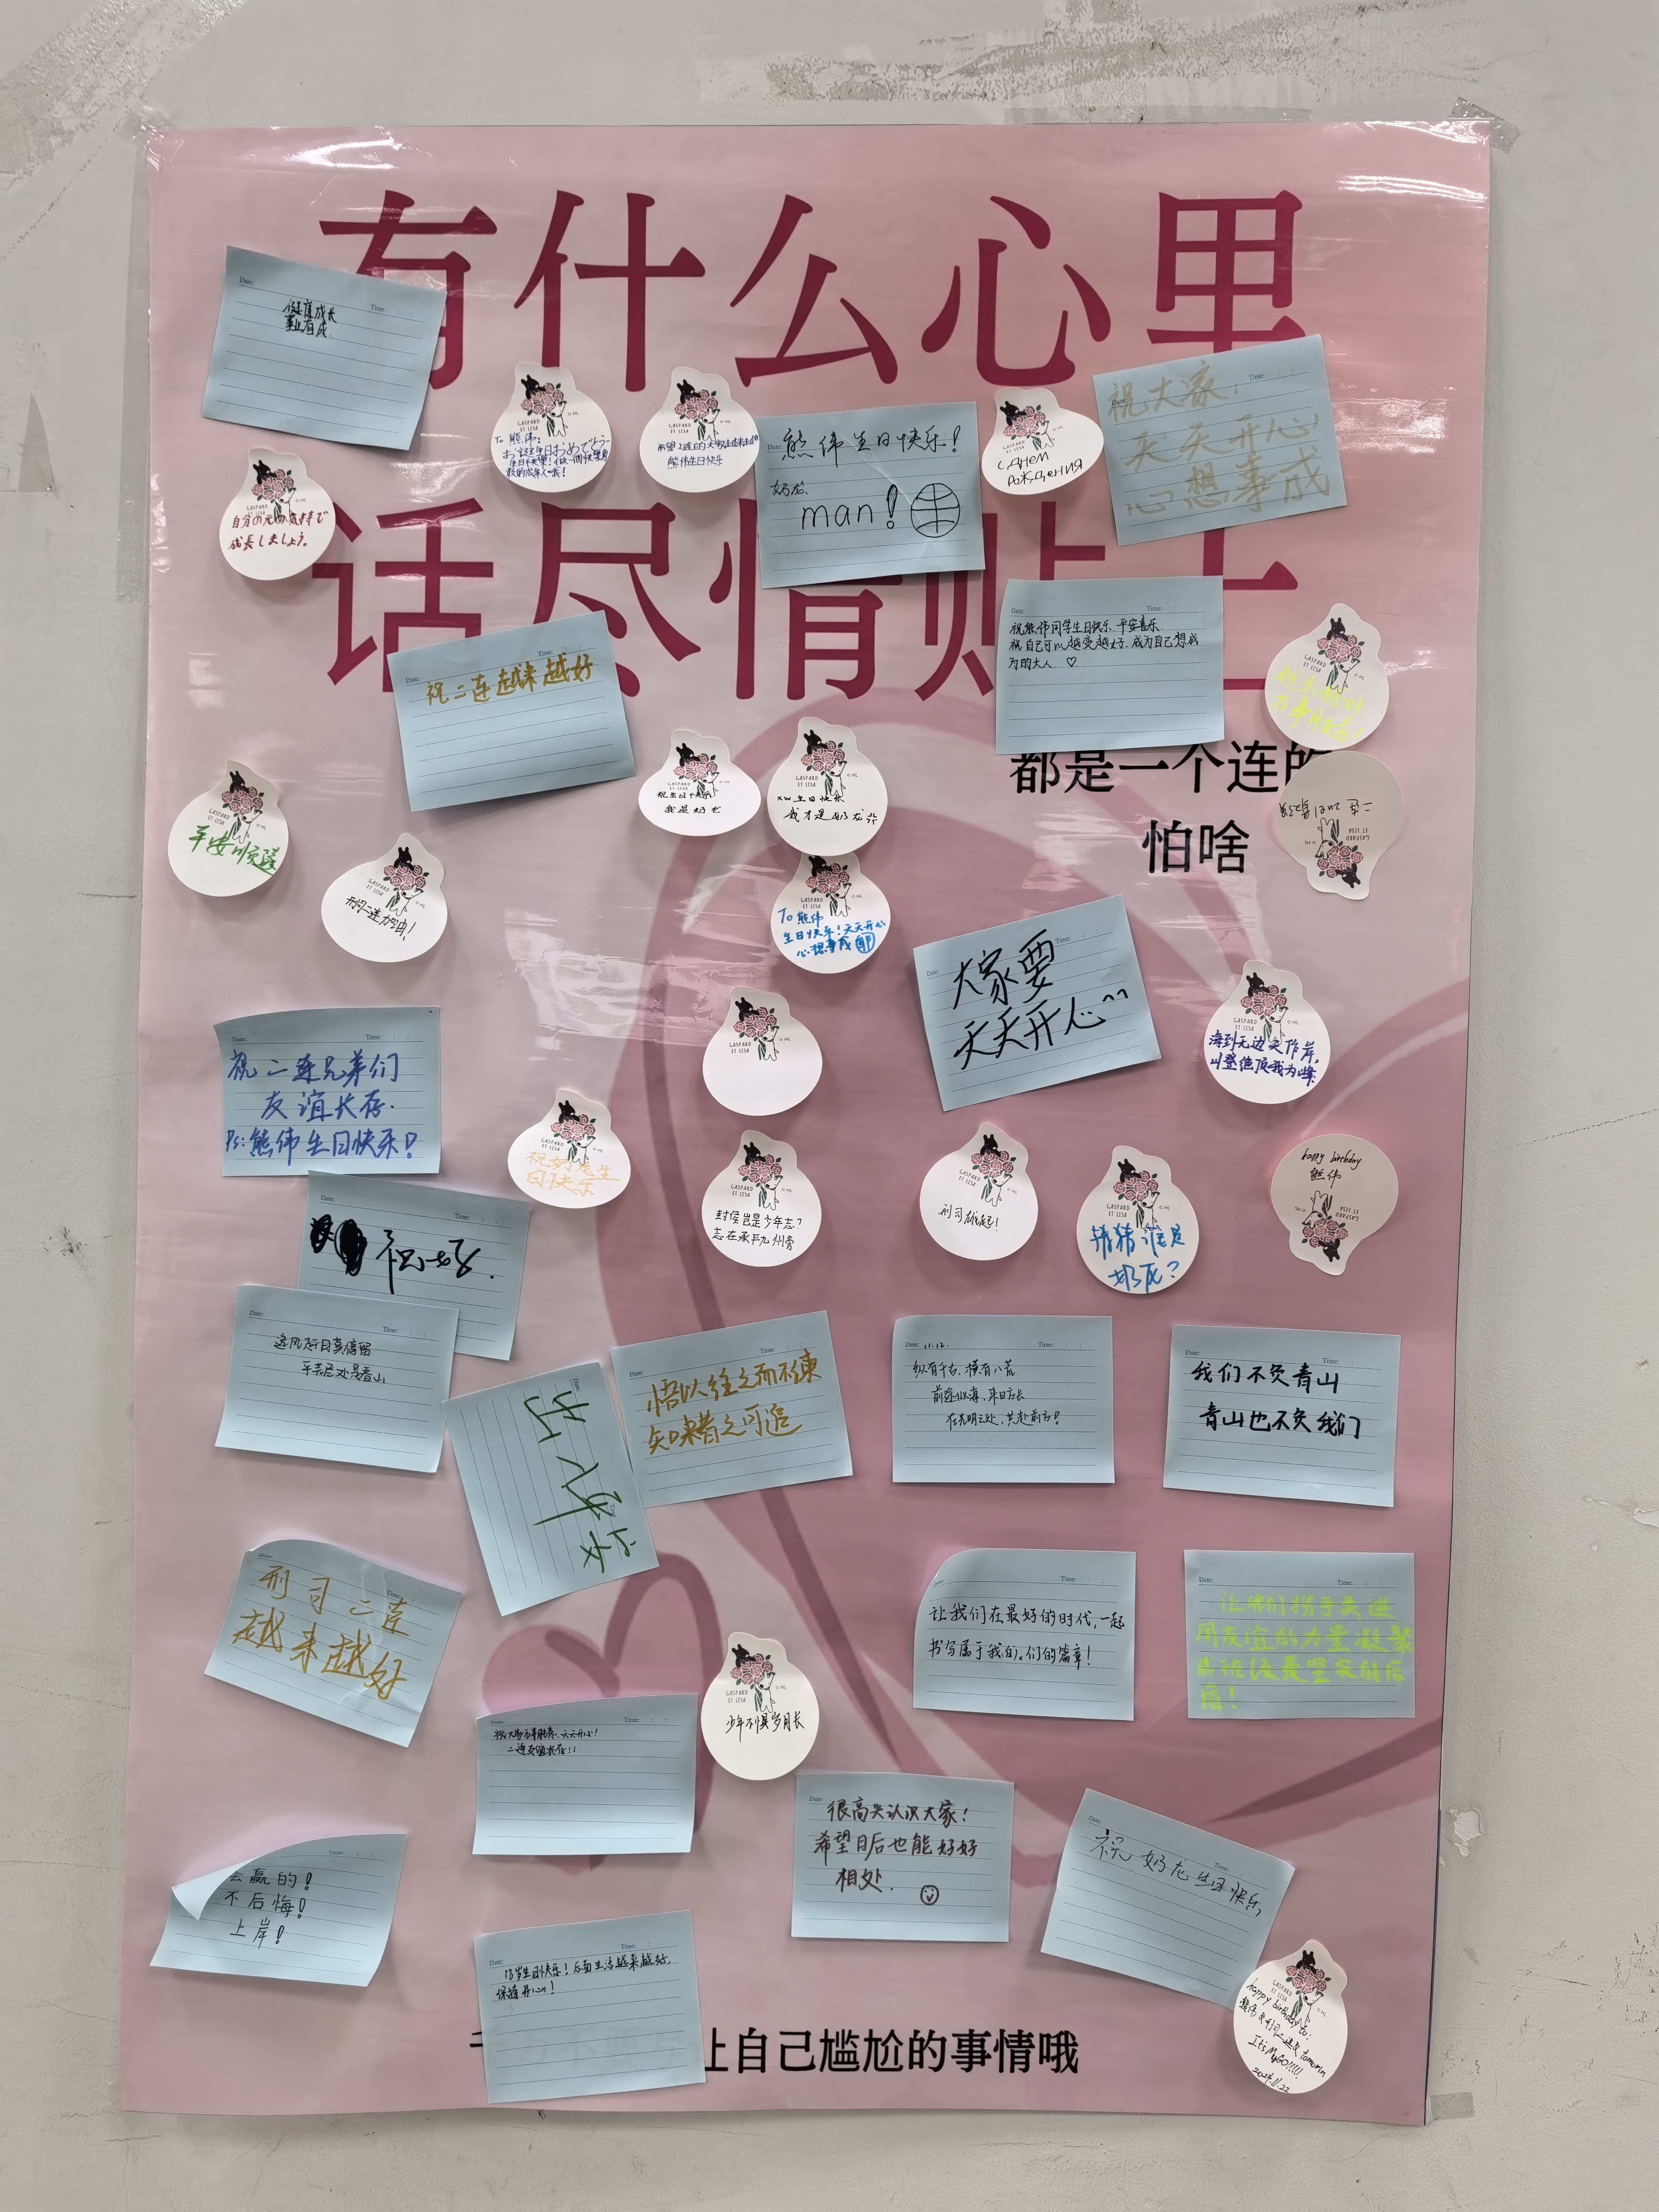 有什么心里
话尽情贴上
都是一个连的
怕啥
Date: Time: : :
健康成长
事业有成.
GASPARD
ET LISA
To 熊伟:
お誕生日おめでとう
生日快樂!做一個快樂
的成年人哦!
GASPARD
ET LISA
希望二连的大家
熊伟生日快乐
Date:
熊伟生日快乐!
奶龙,
man!
GASPARD
ET LISA
С ДНЕМ
РОЖДЕНИЯ
Date: Time: : :
祝大家:
天天开心
心想事成
GASPARD
ET LISA
自分の元の気持で
成長しましょう。
Date: Time: : :
祝二连越来越好
Date: Time: : :
祝熊伟同学生日快乐.平安喜乐.
祝自己可以越变越好.成为自己想成
为的大人. ♡
GASPARD
ET LISA
GASPARD
ET LISA
祝生日快乐
我是奶龙
GASPARD
ET LISA
xw生日快乐
我才是奶龙
GASPARD
ET LISA
二连
GASPARD
ET LISA
平安顺遂
GASPARD
ET LISA
刑司二连加油!
To 熊伟
生日快乐!天天开心
心想事成
Date: Time: : :
大家要
天天开心^^
GASPARD
ET LISA
海到无边天作岸,
山登绝顶我为峰.
GASPARD
ET LISA
Date: Time: : :
祝二连兄弟们
友谊长存.
Ps:熊伟生日快乐!
GASPARD
ET LISA
祝奶龙生
日快乐
GASPARD
ET LISA
封侯岂是少年志?
志在承平九州宁
GASPARD
ET LISA
刑司雄起!
GASPARD
ET LISA
猜猜谁是
奶龙?
happy birthday
熊伟
GASPARD
ET LISA
Date: Time: : :
祝好.
Date: Time: : :
追风赶月莫停留
平芜尽处是春山
Date:
Date: Time: : :
悟以往之而不谏
知来者之可追
Date: 11.12. Time: : :
纵有千古,横有八荒
前途似海,来日方长
在光明之处,共赴前方!
Date: Time: : :
我们不负青山
青山也不负我们
Date: Time: : :
刑司二连
越来越好
Date: Time: : :
让我们在最好的时代,一起
书写属于我们的篇章!
Date: Time: : :
让我们携手共进
用友谊的力量凝聚
成班级最坚实的后
盾!
GASPARD
ET LISA
少年不惧岁月长
Date: Time: : :
祝大家万事胜意.天天开心!
二连友谊长存!!
Date: Time: : :
很高兴认识大家!
希望日后也能好好
相处.
Date: Time: : :
祝奶龙生日快乐
Time: : :
会赢的!
不后悔!
上岸!
Date: Time: : :
18岁生日快乐!后面生活越来越好,
保持开心!
GASPARD
ET LISA
happy birthday to:
熊伟
tomorin
It's MyGO!!!!!
2024.11.22
让自己尴尬的事情哦